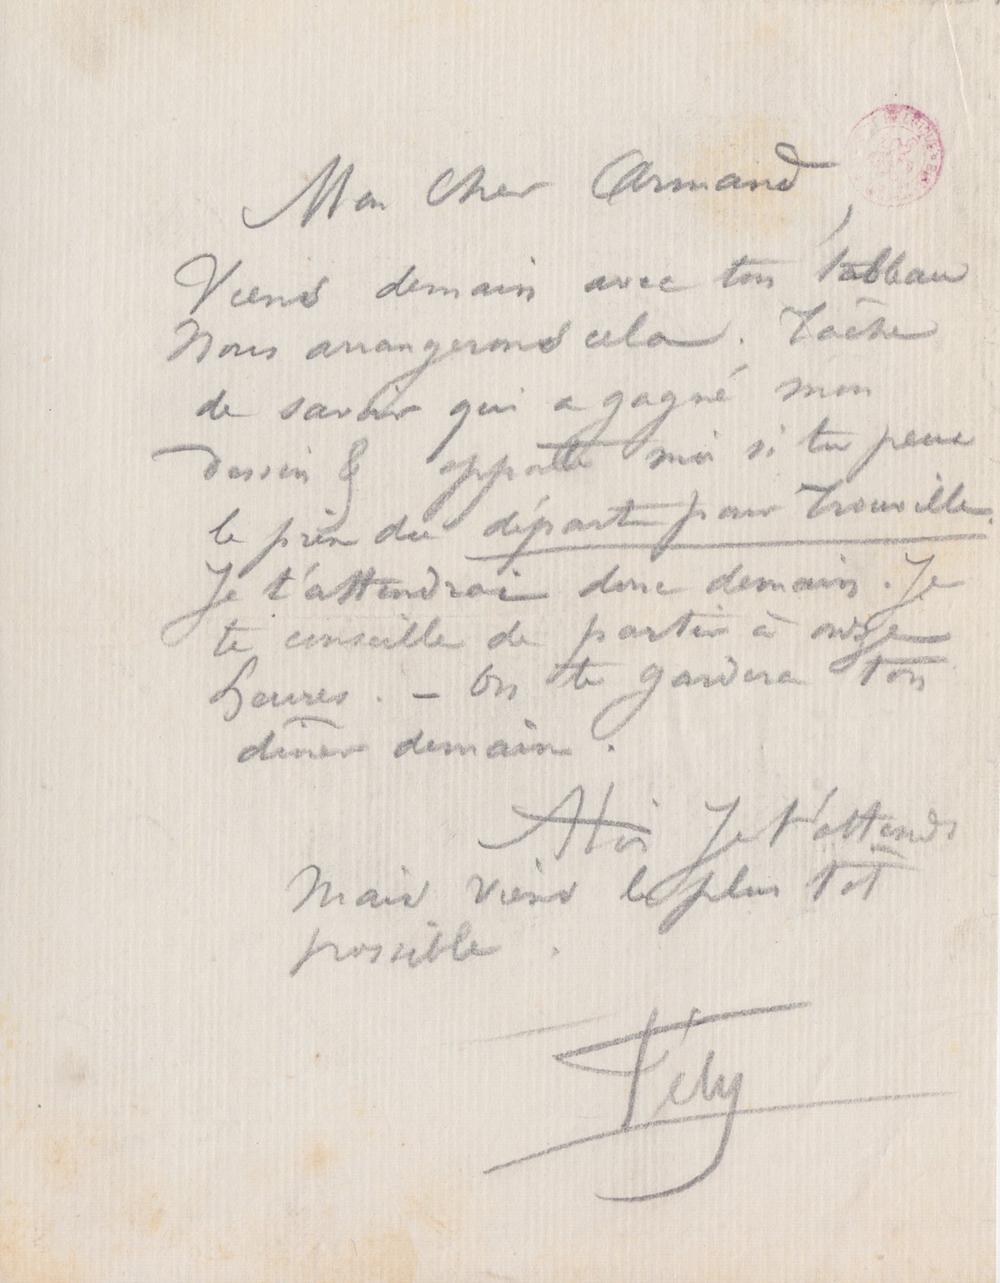 Mon Cher Armand,
Viens demain avec ton tableau
Nous arrangerons cela. Tâche
de savoir qui a gagné mon
dessin & apporte moi si tu peux
le prix du départ pour Trouville.
Je t'attendrai donc demain. Je
te conseille de partir à onze
heures. – On te gardera ton
dîner demain.
Je t'attends
Mais viens le plus tôt
possible.
Fély